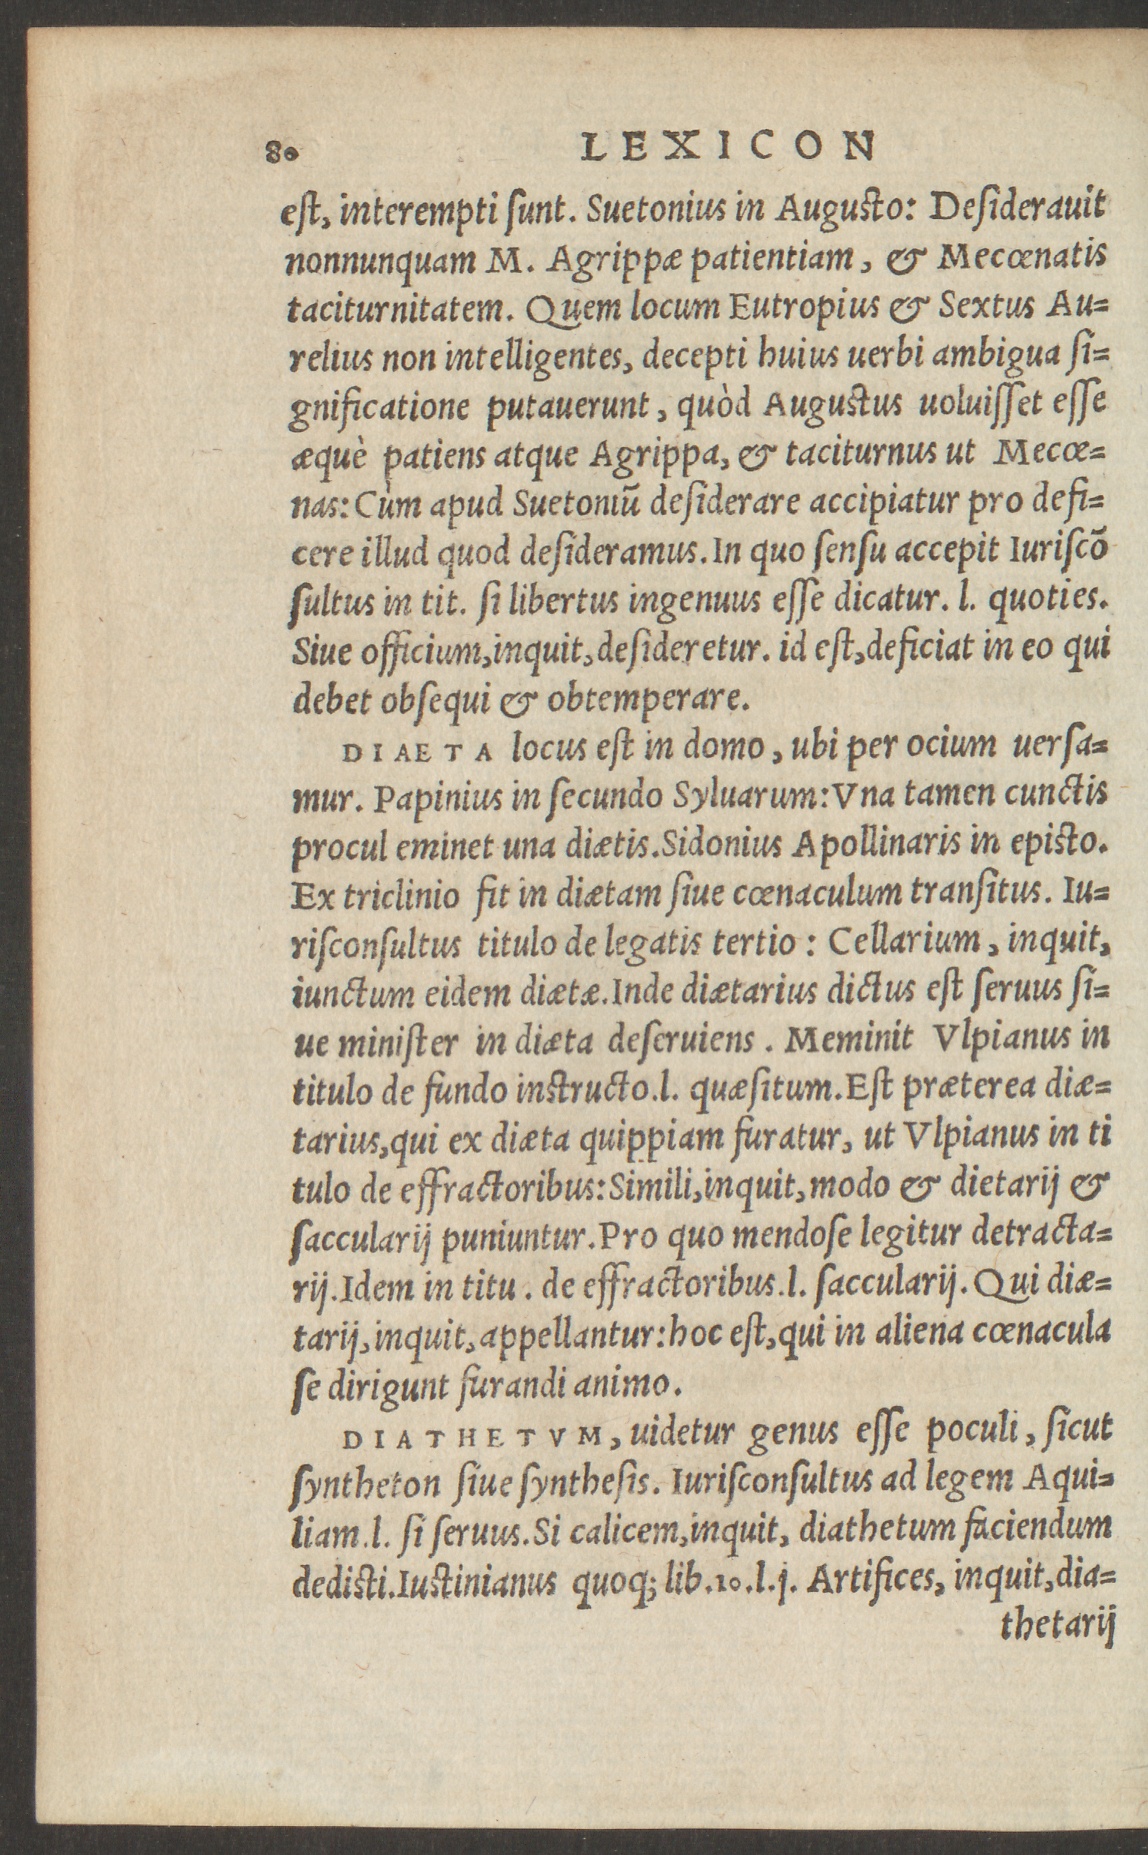 80 LEXICON
est, interempti sunt. Suetonius in Augusto: Desiderauit
nonnunquam M. Agrippæ patientiam, & Mecœnatis
taciturnitatem. Quem locum Eutropius & Sextus Au=
relius non intelligentes, decepti huius uerbi ambigua si=
gnificatione putauerunt, quòd Augustus uoluisset esse
æquè patiens atque Agrippa, & taciturnus ut Mecœ=
nas: Cùm apud Suetoniū desiderare accipiatur pro defi=
cere illud quod desideramus. In quo sensu accepit Iuriscō
sultus in tit. si libertus ingenuus esse dicatur. l. quoties.
Siue officium, inquit, desideretur. id est, deficiat in eo qui
debet obsequi & obtemperare.
DIAETA locus est in domo, ubi per ocium uersa=
mur. Papinius in secundo Syluarum: Vna tamen cunctis
procul eminet una diætis. Sidonius Apollinaris in episto.
Ex triclinio fit in diætam siue cœnaculum transitus. Iu=
risconsultus titulo de legatis tertio: Cellarium, inquit,
iunctum eidem diætæ. Inde diætarius dictus est seruus si=
ue minister in diæta deseruiens. Meminit Vlpianus in
titulo de fundo instructo. l. quæsitum. Est præterea diæ=
tarius, qui ex diæta quippiam furatur, ut Vlpianus in ti
tulo de effractoribus: Simili, inquit, modo & dietarij &
saccularij puniuntur. Pro quo mendose legitur detracta=
rij. Idem in titu. de effractoribus. l. saccularij. Qui diæ=
tarij, inquit, appellantur: hoc est, qui in aliena cœnacula
se dirigunt furandi animo.
DIATHETVM, uidetur genus esse poculi, sicut
syntheton siue synthesis. Iurisconsultus ad legem Aqui=
liam. l. si seruus. Si calicem, inquit, diathetum faciendum
dedisti. Iustinianus quoq; lib. 10. l. j. Artifices, inquit, dia=
thetarij